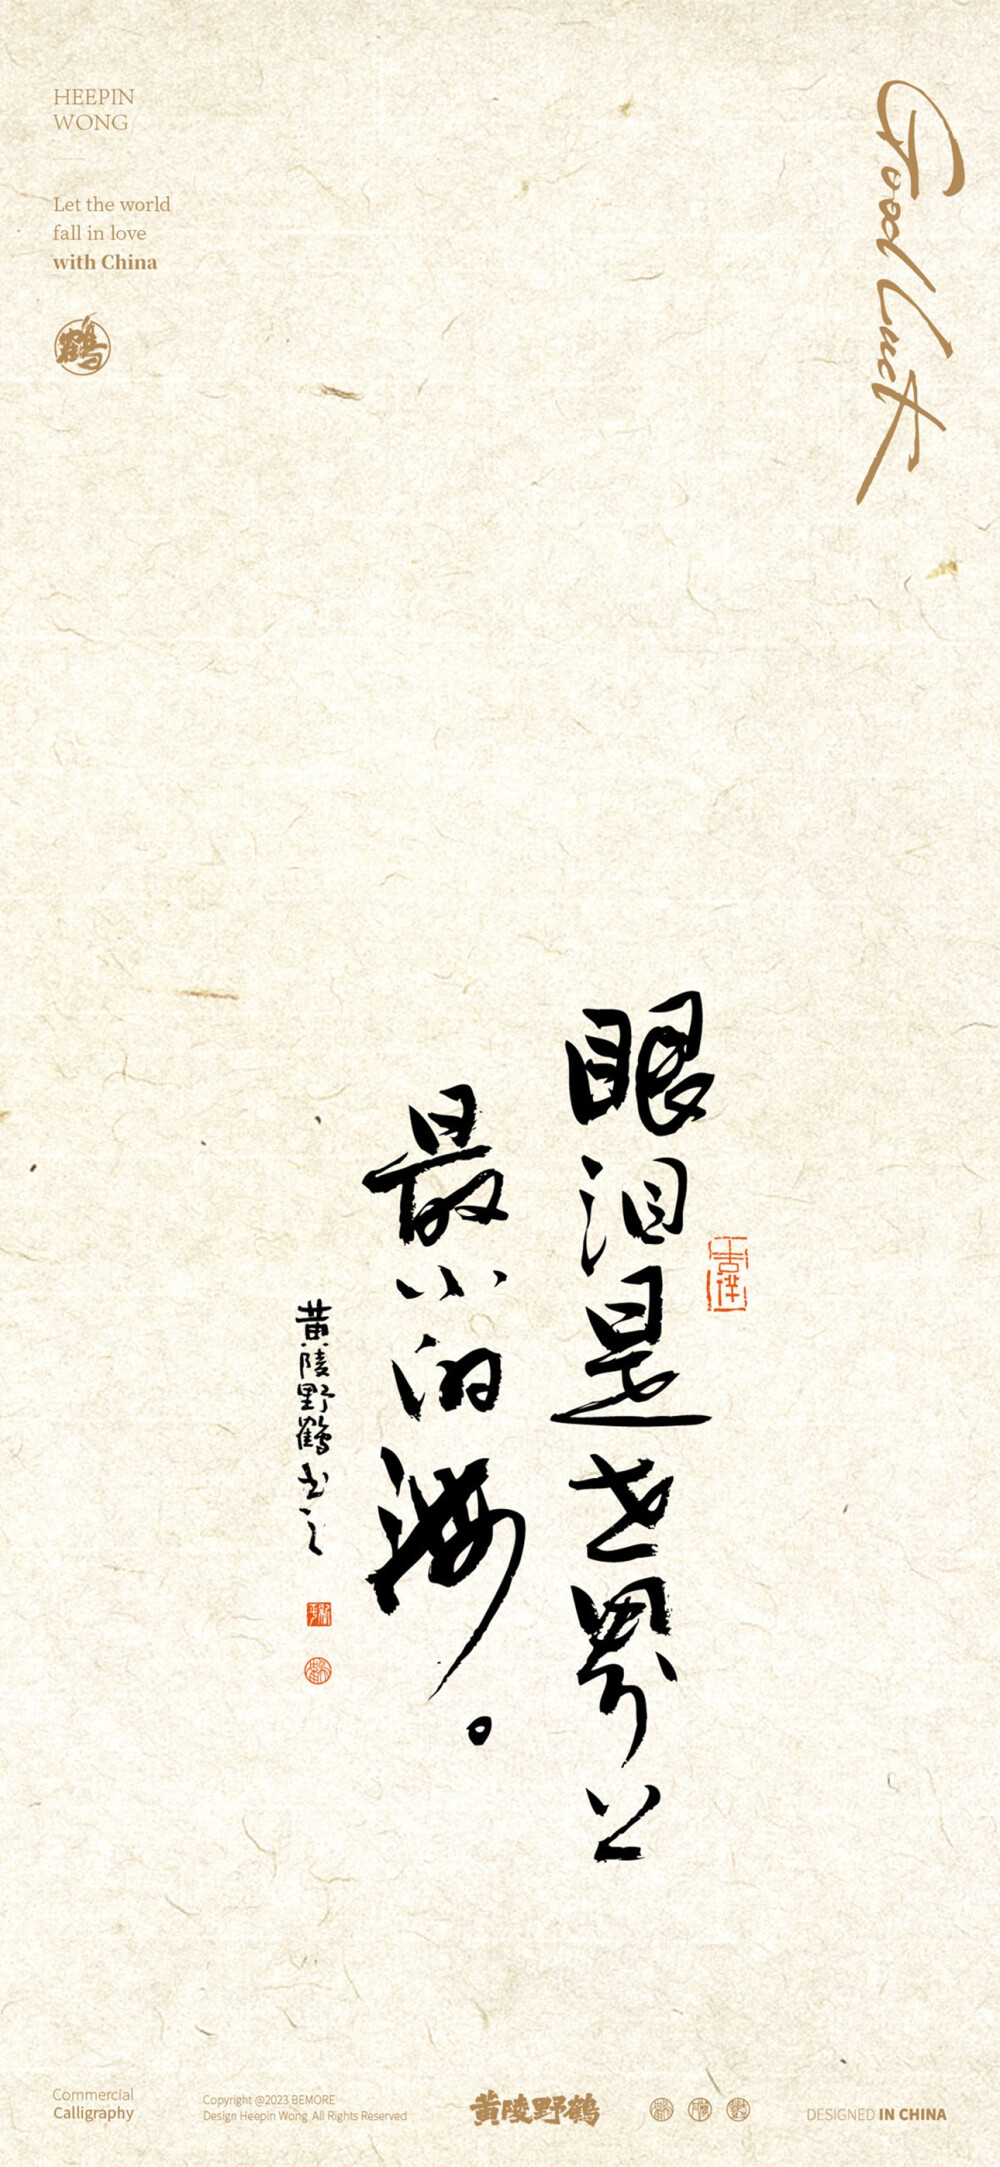 HEEPIN
WONG
Let the world
fall in love
with China
鹤
Good Luck
眼泪是世界上
最小的海。
黄陵野鹤书之
Commercial
Calligraphy
Copyright @2023 BEMORE
Design Heepin Wong All Rights Reserved
黄陵野鹤
DESIGNED IN CHINA